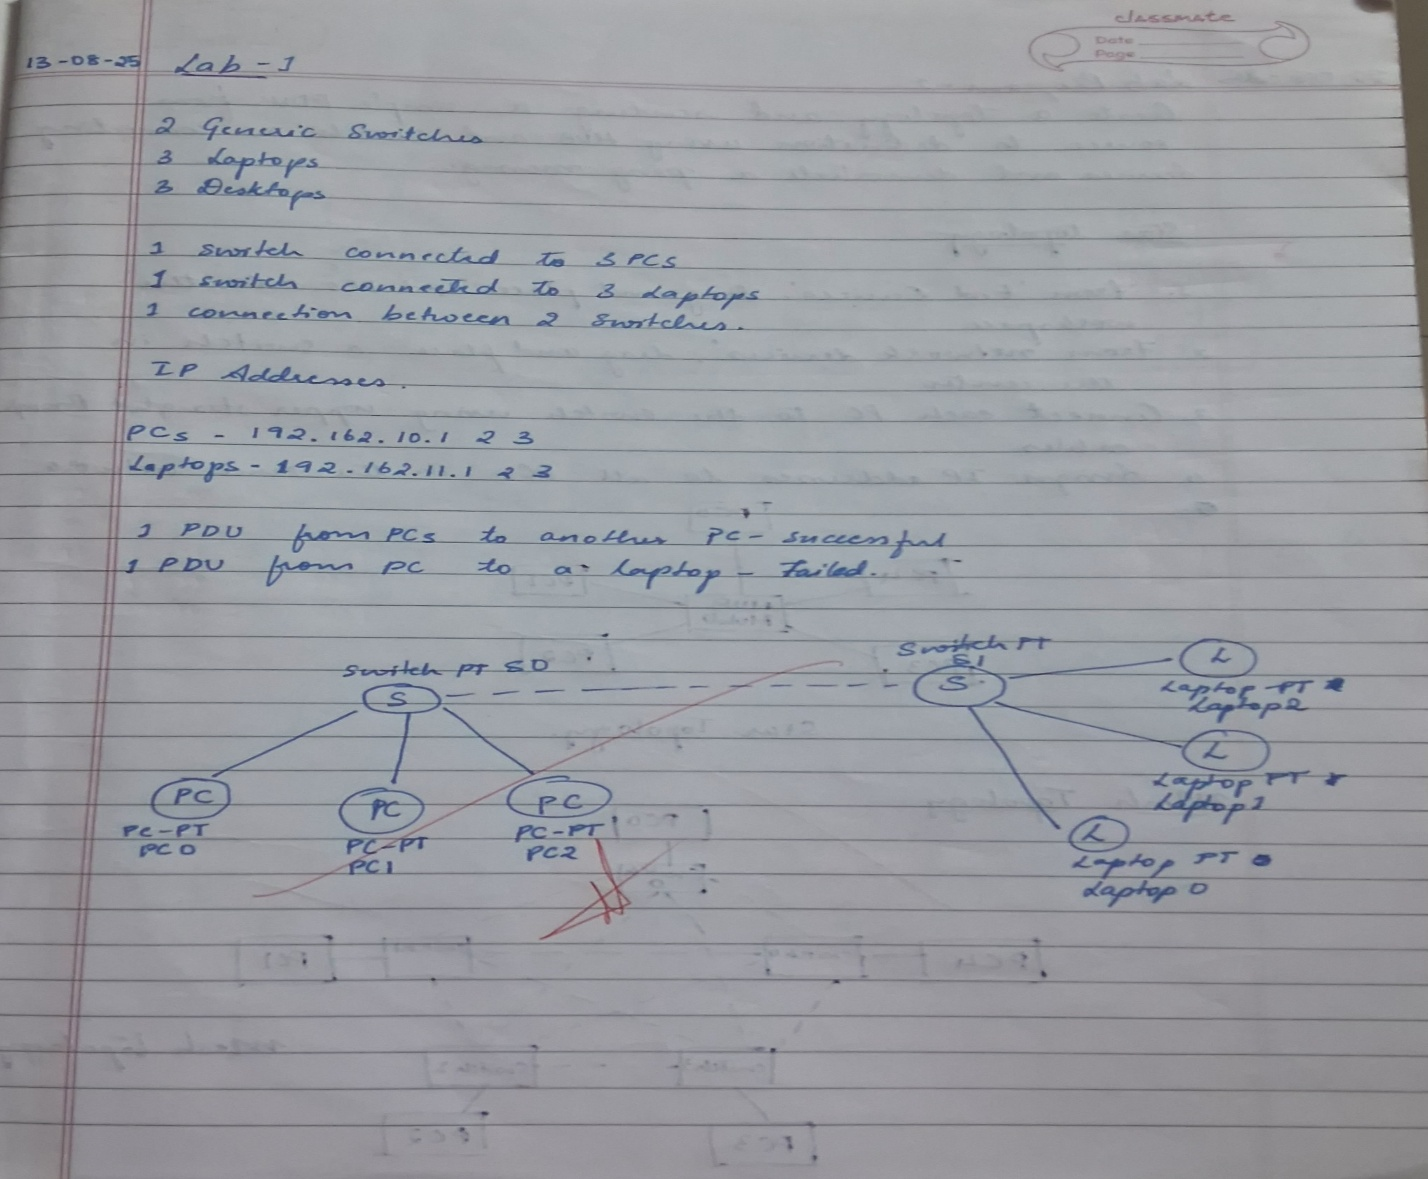 classmate
Date
Page
13-08-25 Lab - 1
2 Generic Switches
3 Laptops
3 Desktops
1 switch connected to 3 PCs
1 switch connected to 3 Laptops
1 connection between 2 switches.
IP Addresses.
PCs - 192.162.10.1 2 3
Laptops - 192.162.11.1 2 3
1 PDU from PCs to another PC - successful
1 PDU from PC to a laptop - Failed.
Switch PT S0
S
Switch PT
S1
S
L
Laptop-PT
Laptop2
L
Laptop PT
Laptop1
L
Laptop PT
Laptop 0
PC
PC-PT
PC0
PC
PC-PT
PC1
PC
PC-PT
PC2